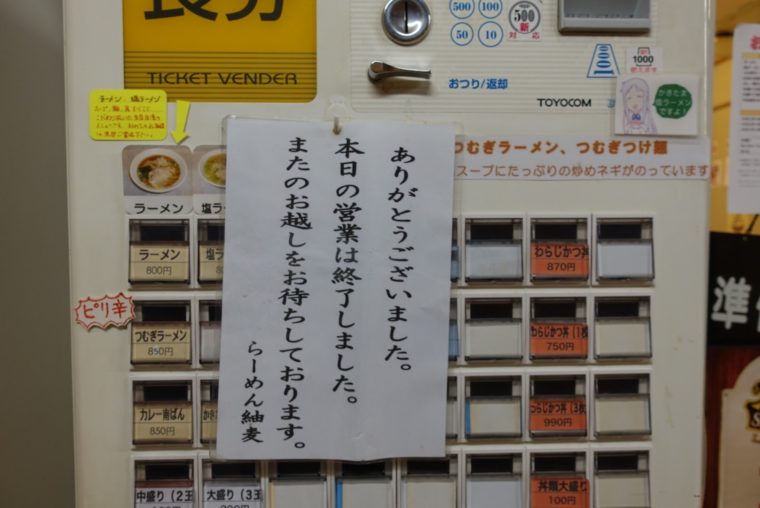 食券
TICKET VENDER
500
100
50
10
500
新
対応
1000
1000
使えます
おつり/返却
TOYOCOM
かきたま
塩ラーメン
ですよ!
ラーメン 塩ラーメン
つむぎラーメン、つむぎつけ麺
スープにたっぷりの炒めネギがのっています
ありがとうございました。
本日の営業は終了しました。
またのお越しをお待ちしております。
らーめん紬麦
ラーメン
塩
ラーメン
800円
塩ラ
わらじかつ丼
870円
ピリ辛
つむぎラーメン
850円
わらじかつ丼(1枚
750円
カレー南ばん
850円
かき
わらじかつ丼(3枚
990円
中盛り(2玉
大盛り(3玉
丼類大盛り
100円
準